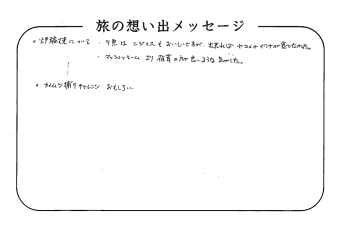 旅の想い出メッセージ
。炉端焼について ・今回は ニジマスも おいしいですが、出来れば ヤマメかイワナが食べたかった。
・マッシュルーム より 椎茸の方が 良いような 気がした。
。 捕りチャレンジ おもしろい。